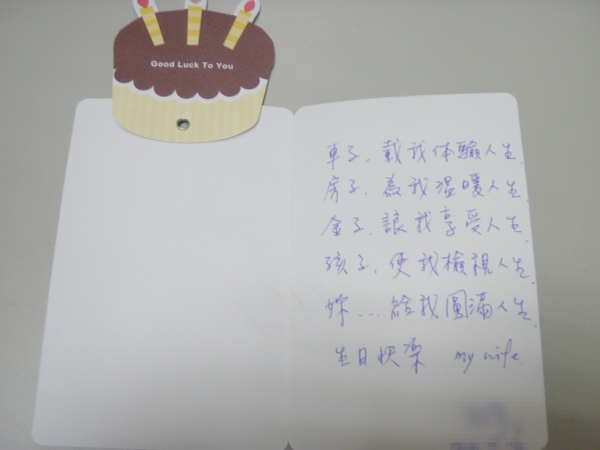 Good Luck To You
車子、載我体驗人生
房子、為我溫暖人生
金子、讓我享受人生
孩子、使我檢視人生
妳...給我圓滿人生
生日快樂 my wife